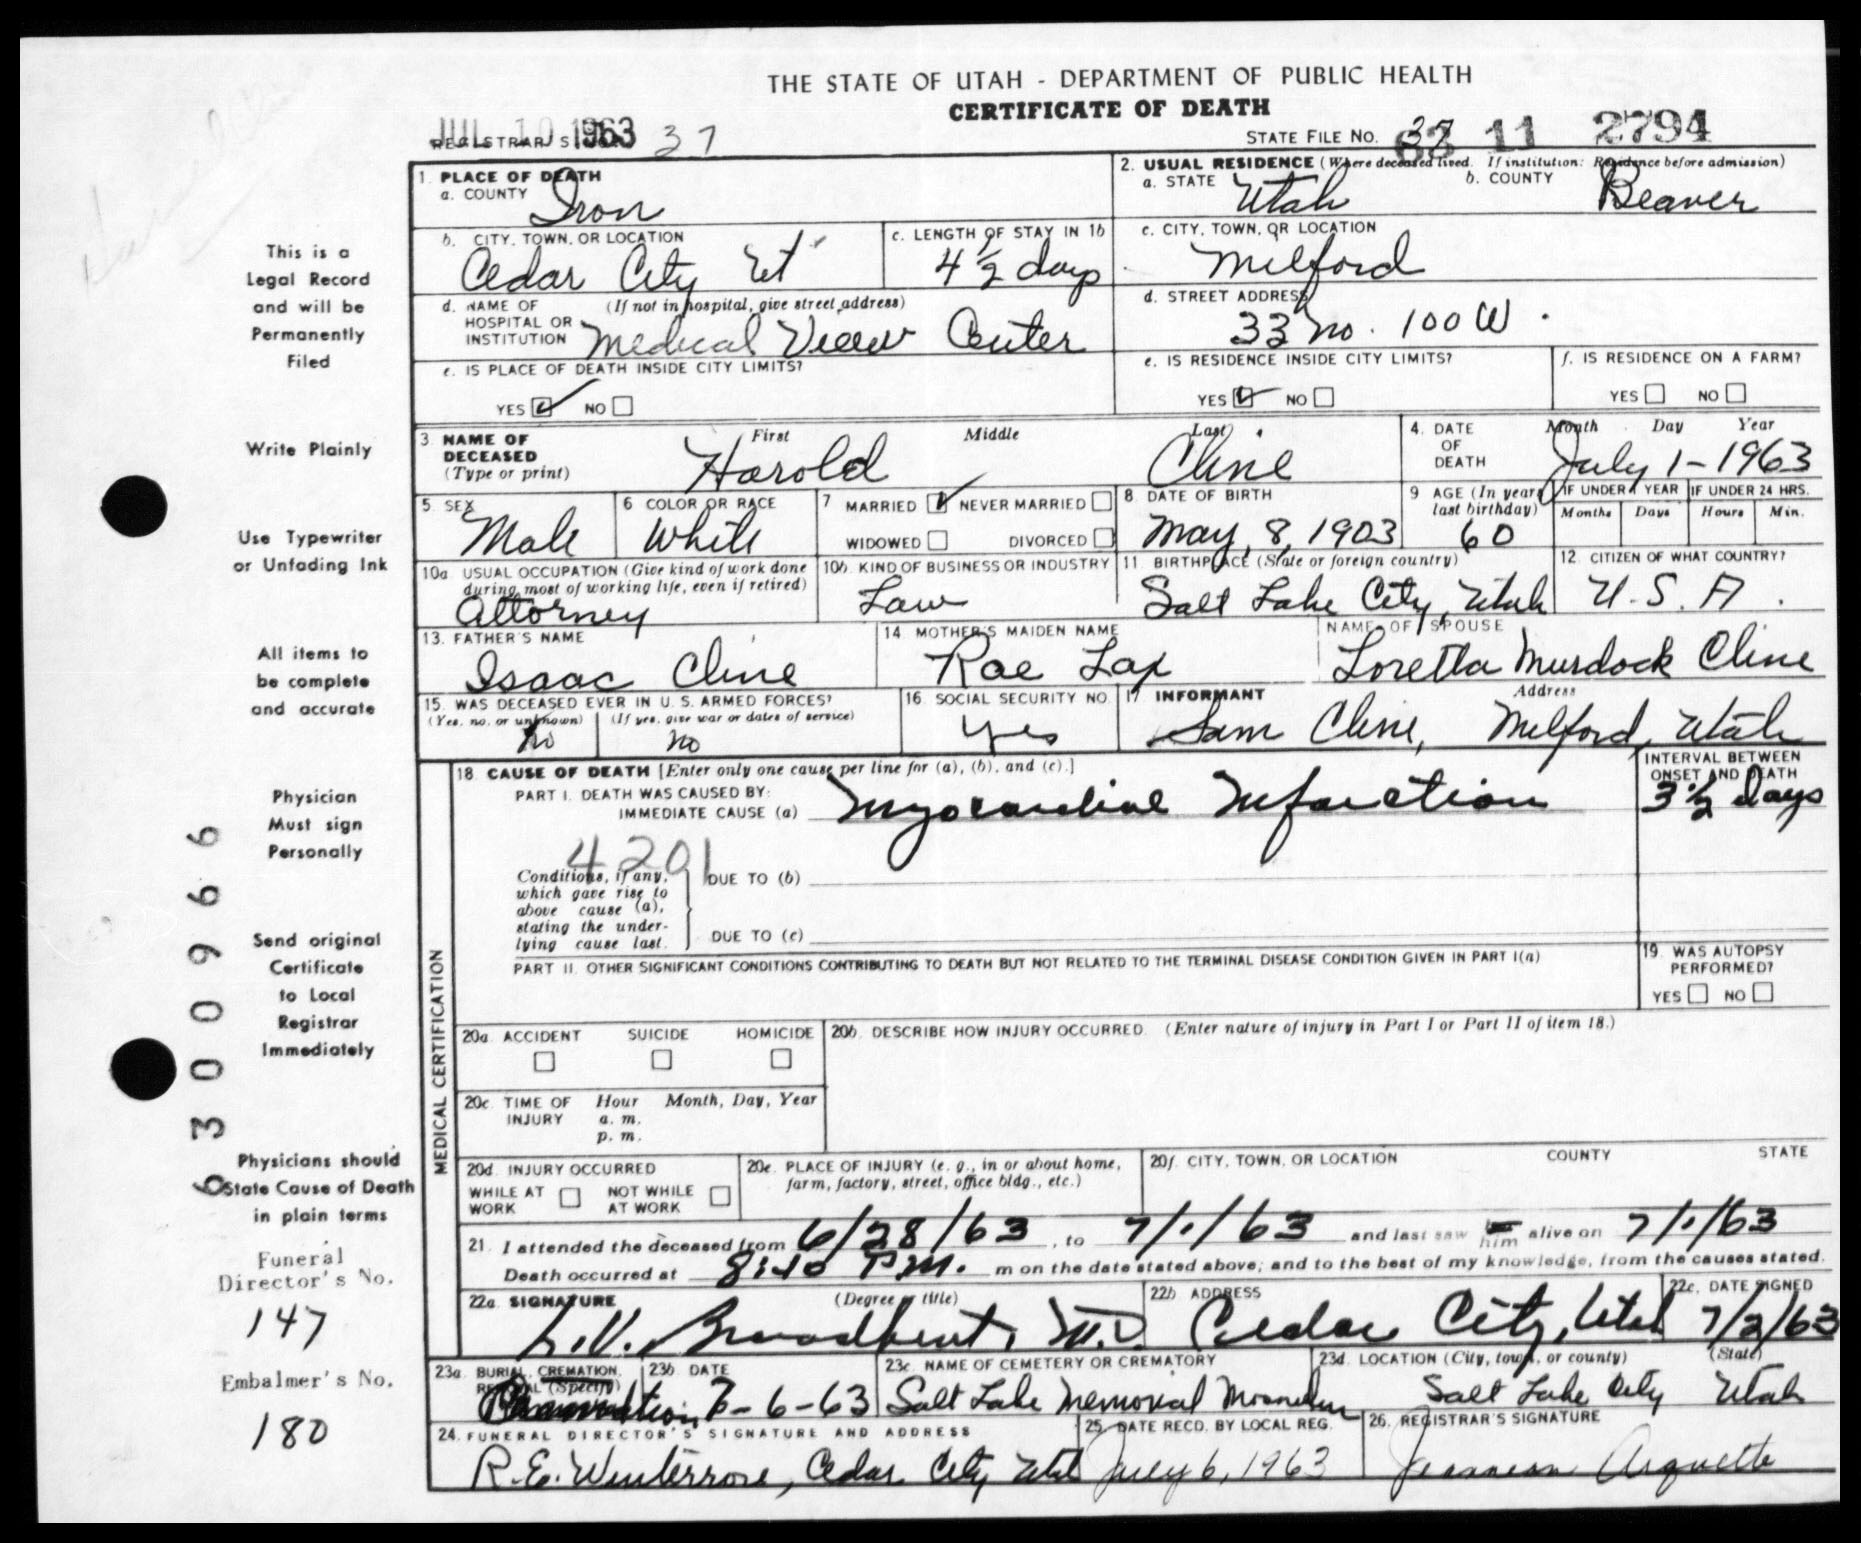 THE STATE OF UTAH - DEPARTMENT OF PUBLIC HEALTH
CERTIFICATE OF DEATH
JUL 10 1963
REGISTRAR'S 37
STATE FILE NO. 37 63 11 2794
1. PLACE OF DEATH
a. COUNTY Iron
2. USUAL RESIDENCE (Where deceased lived. If institution: Residence before admission)
a. STATE Utah b. COUNTY Beaver
b. CITY, TOWN, OR LOCATION Cedar City Ut
c. LENGTH OF STAY IN 1b 4 1/2 days
c. CITY, TOWN, OR LOCATION Milford
d. NAME OF HOSPITAL OR INSTITUTION (If not in hospital, give street address) Medical View Center
d. STREET ADDRESS 33 no. 100 W.
e. IS PLACE OF DEATH INSIDE CITY LIMITS?
YES NO
e. IS RESIDENCE INSIDE CITY LIMITS?
YES NO
f. IS RESIDENCE ON A FARM?
YES NO
3. NAME OF DECEASED (Type or print)
First Middle Last
Harold Cline
4. DATE OF DEATH Month Day Year
July 1-1963
5. SEX Male
6 COLOR OR RACE White
7 MARRIED NEVER MARRIED
WIDOWED DIVORCED
8. DATE OF BIRTH May, 8, 1903
9 AGE (In years last birthday) 60
IF UNDER 1 YEAR IF UNDER 24 HRS.
Months Days Hours Min.
10a. USUAL OCCUPATION (Give kind of work done during most of working life, even if retired) Attorney
10b. KIND OF BUSINESS OR INDUSTRY Law
11 BIRTHPLACE (State or foreign country) Salt Lake City, Utah
12. CITIZEN OF WHAT COUNTRY? U.S.A.
13. FATHER'S NAME Isaac Cline
14 MOTHER'S MAIDEN NAME Rae Lax
NAME OF SPOUSE Loretta Murdock Cline
15. WAS DECEASED EVER IN U. S. ARMED FORCES?
(Yes, no, or unknown) (If yes, give war or dates of service)
No no
16. SOCIAL SECURITY NO. yes
17 INFORMANT Address
Sam Cline, Milford, Utah
MEDICAL CERTIFICATION
18. CAUSE OF DEATH [Enter only one cause per line for (a), (b), and (c).]
INTERVAL BETWEEN ONSET AND DEATH
3 1/2 days
PART I. DEATH WAS CAUSED BY:
IMMEDIATE CAUSE (a) Myocardial Infarction
4201
Conditions, if any, which gave rise to above cause (a), stating the underlying cause last.
DUE TO (b)
DUE TO (c)
PART II. OTHER SIGNIFICANT CONDITIONS CONTRIBUTING TO DEATH BUT NOT RELATED TO THE TERMINAL DISEASE CONDITION GIVEN IN PART I(a)
19. WAS AUTOPSY PERFORMED?
YES NO
20a. ACCIDENT SUICIDE HOMICIDE
20b. DESCRIBE HOW INJURY OCCURRED. (Enter nature of injury in Part I or Part II of item 18.)
20c. TIME OF INJURY Hour Month, Day, Year
a. m.
p. m.
20d. INJURY OCCURRED
WHILE AT WORK NOT WHILE AT WORK
20e. PLACE OF INJURY (e. g., in or about home, farm, factory, street, office bldg., etc.)
20f. CITY, TOWN, OR LOCATION COUNTY STATE
21. I attended the deceased from 6/28/63, to 7/1/63 and last saw him alive on 7/1/63
Death occurred at 8:40 P.M. m on the date stated above; and to the best of my knowledge, from the causes stated.
22a. SIGNATURE (Degree or title) L.V. Broadbent, M.D.
22b ADDRESS Cedar City, Utah
22c. DATE SIGNED 7/2/63
23a. BURIAL, CREMATION, REMOVAL (Specify)
23b. DATE 7-6-63
23c. NAME OF CEMETERY OR CREMATORY Salt Lake Memorial
23d. LOCATION (City, town, or county) (State) Salt Lake City Utah
24. FUNERAL DIRECTOR'S SIGNATURE AND ADDRESS
R.E. Winterrose, Cedar City Utah
25. DATE RECD. BY LOCAL REG. July 6, 1963
26. REGISTRAR'S SIGNATURE Arquette
This is a
Legal Record
and will be
Permanently
Filed
Write Plainly
Use Typewriter
or Unfading Ink
All items to
be complete
and accurate
Physician
Must sign
Personally
Send original
Certificate
to Local
Registrar
Immediately
Physicians should
State Cause of Death
in plain terms
Funeral
Director's No.
147
Embalmer's No.
180
6300966